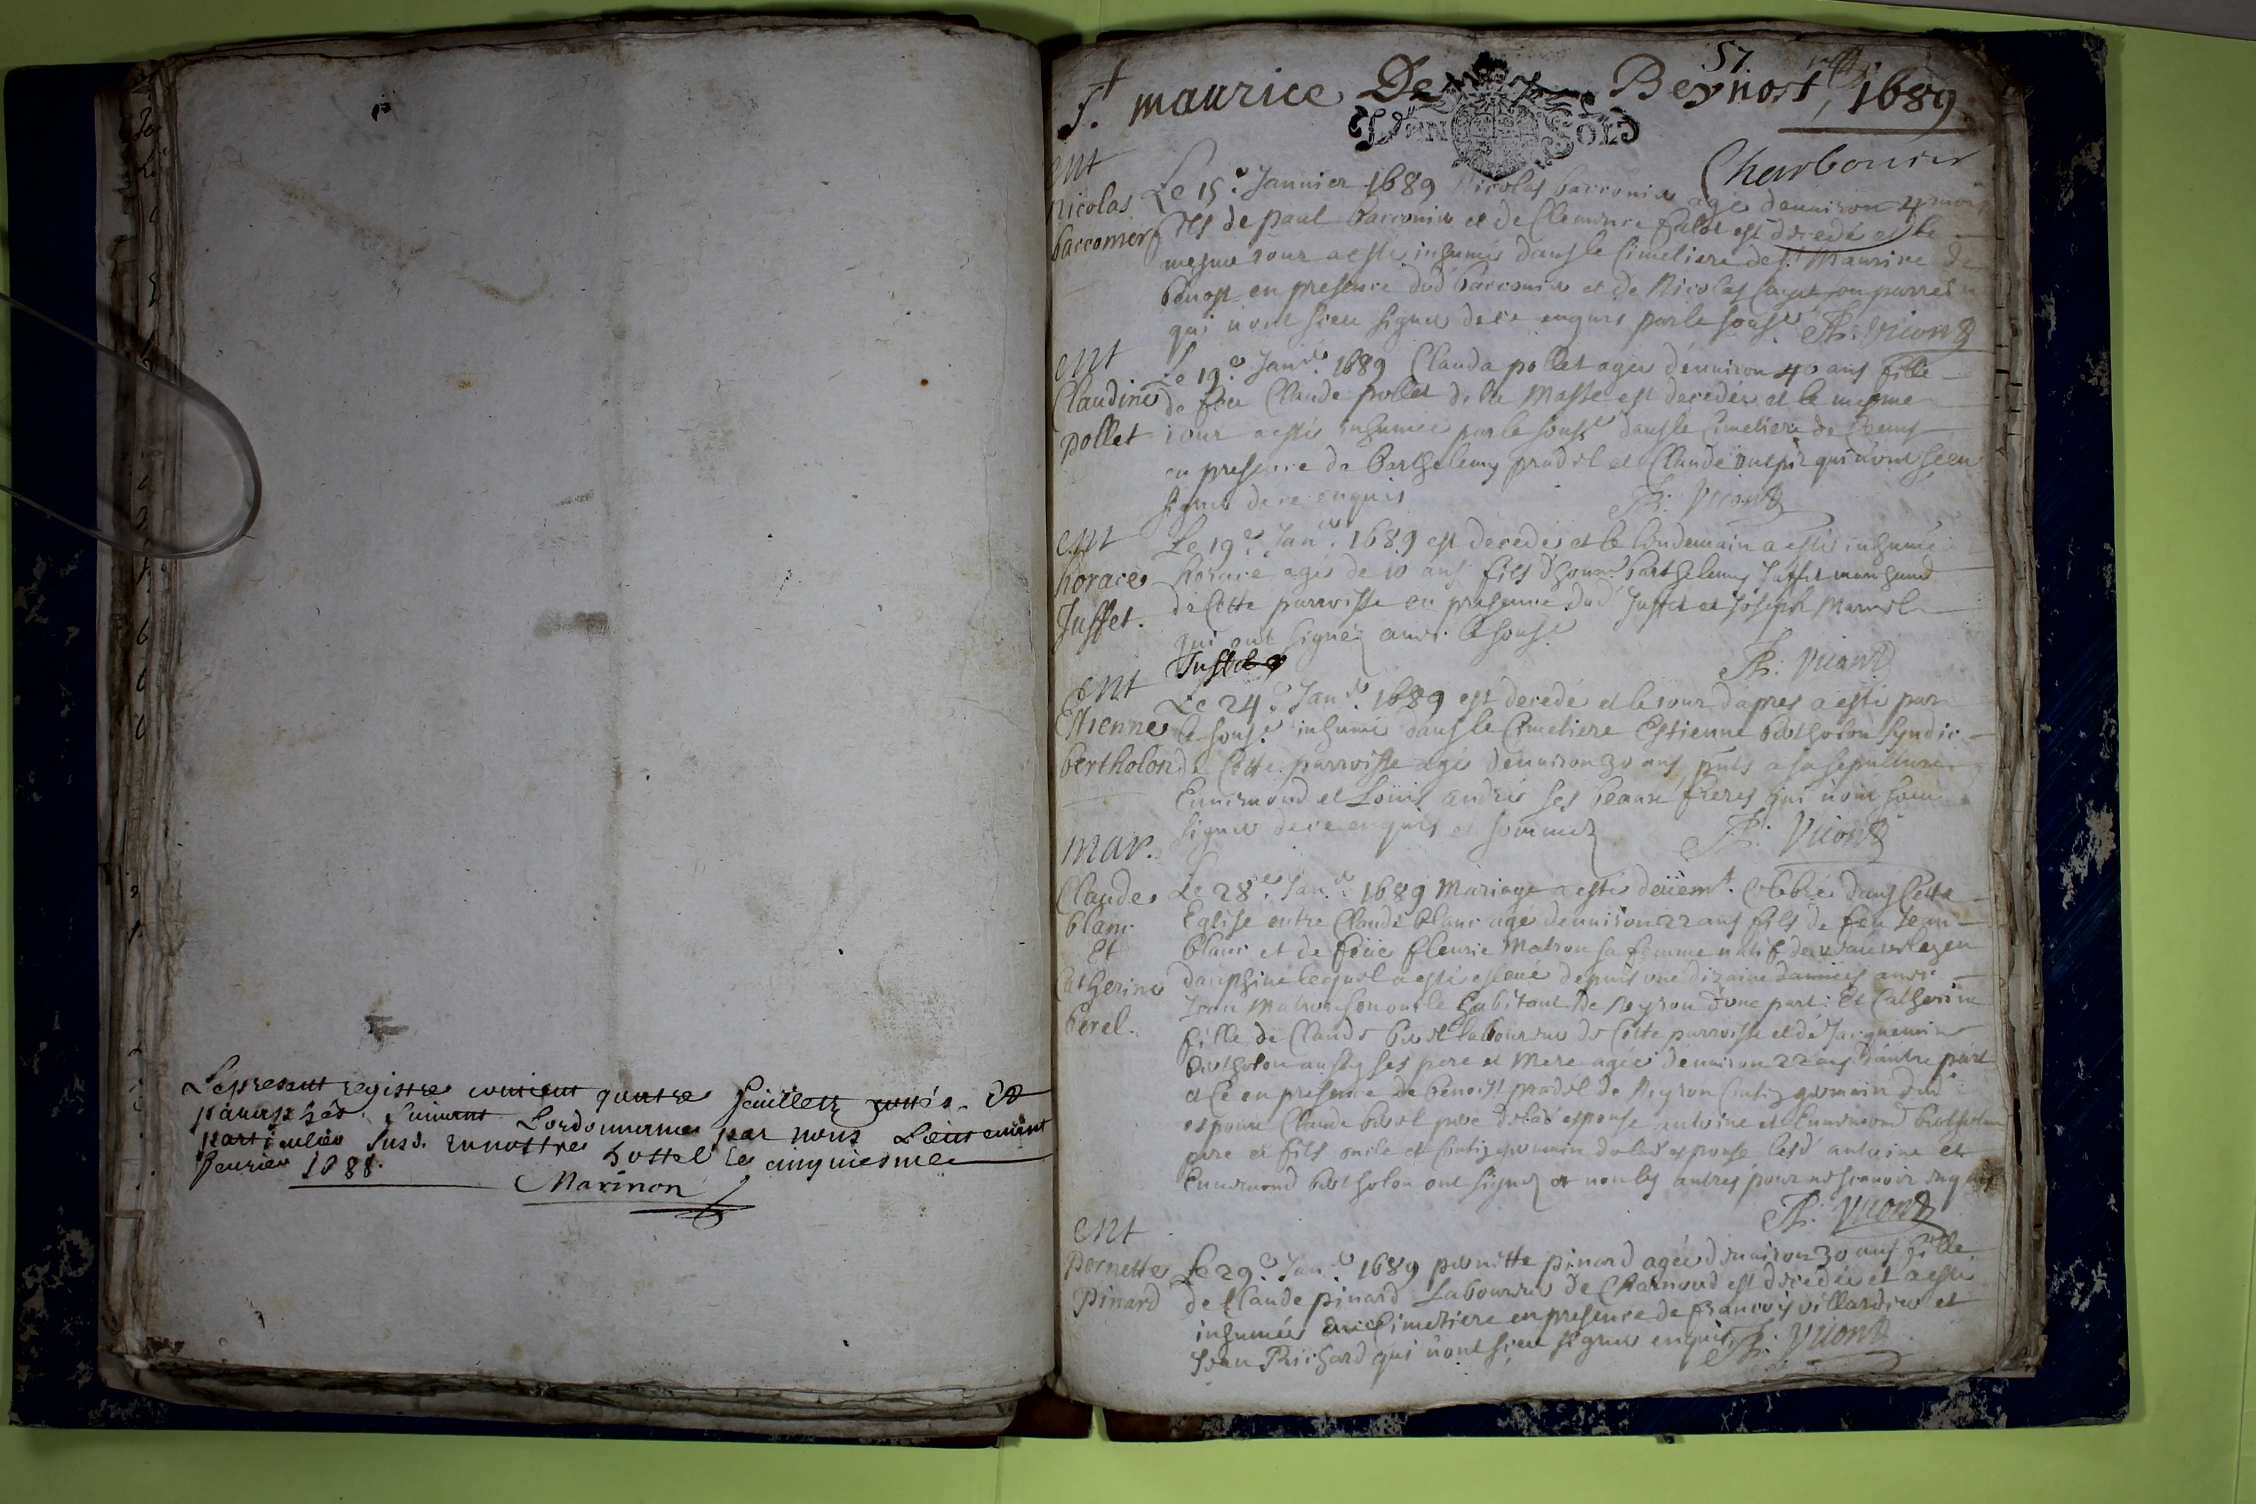 Le present registre contient quatre feuilletz cottés et
paraphés suivant Lordonnance par nous Lieutenant
particulier susd. en nostre hostel le cinquiesme
feurier 1688.
Marinon
57
St. maurice De Beynost, 1689
VN SOL
Charbonier
ent
nicolas
barconier
Le 15e. Januier 1689 Nicolas barconier agé denuiron 4 mois
fils de paul barconier et de Clemence falot est decedé et le
mesme iour a esté inhumé dans le Cimetiere de St. Maurice de
benost en presence dud barconier et de Nicolas son parrein
qui n'ont sceu signer de ce enquis par le soussé. Ph: Vicond
ent
Claudine
pollet
Le 19e. Janer. 1689 Clauda pollet agée d'enuiron 40 ans fille
de feu Claude pollet de la Masse est decedée et le mesme
iour a esté inhumée par le soussé dans le Cimetiere de ceans
en presence de Barthelemy pradel et Claude qui n'ont sceu
signer de ce enquis Ph: Vicond
ent
horace
Juffet.
Le 19e. Janer. 1689 est decedé et le lendemain a esté inhumé
horace agé de 10 ans fils d'honn. barthelemy Juffet marchand
de Cette parroisse en presence dud Juffet et Joseph
qui ont signéz auec le soussé
Juffet Ph: Vicond
ent
Estienne
bertholon
Le 24e. Janer. 1689 est decedé et le iour d'apres a esté par
le soussé. inhumé dans le Cimetiere Estienne bertholon syndic
de Cette parroisse agé denuiron 30 ans pnts a sa sepulture
Ennemond et Louis andré ses beaux freres qui n'ont sceu
signer de ce enquis et sommez Ph: Vicond
mar.
Claude
blanc
et
Catherine
berel.
Le 28e. Janer. 1689 Mariage a esté deüemt. Celebré dans Cette
Eglise entre Claude blanc agé denuiron 22 ans fils de feu Jean
blanc et de feüe fleurie Matron sa femme natif de en
dauphiné lequel a esté esleué depuis une dizaine dannées auec
Jean Matron son oncle habitant de Neyron d'une part: Et Catherine
fille de Claude berel laboureur de Cette parroisse et de Jacquemine
bertholon aussy ses pere et mere agée denuiron 22 ans d'autre part
et Ce en presence de benoist pradel de Neyron Cousin germain dud
espoux Claude berel pere de lad espouse antoine et Ennemond bertholon
pere et fils oncle et Cousin germain de lad espouse lesd antoine et
Ennemond bertholon ont signez et non les autres pour ne scauoir enquis
Ph: Vicond
ent
pernette
pinard
Le 29e. Janer. 1689 pernette pinard agée denuiron 30 ans fille
de Claude pinard Laboureur de Charnoud est decedée et a esté
inhumée au Cimetiere en presence de francois villardier et
Jean Richard qui n'ont sceu signer enquis Ph: Vicond